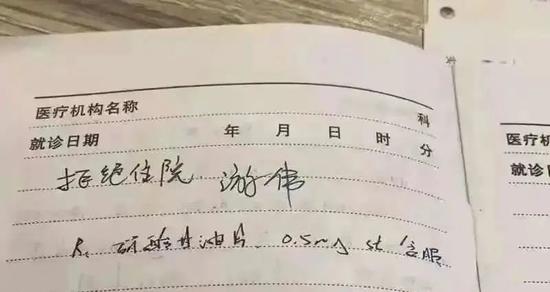 医疗机构名称 科
就诊日期 年 月 日 时 分
拒绝住院 游伟
R: 硝酸甘油片 0.5mg st 含服
医疗机
就诊日